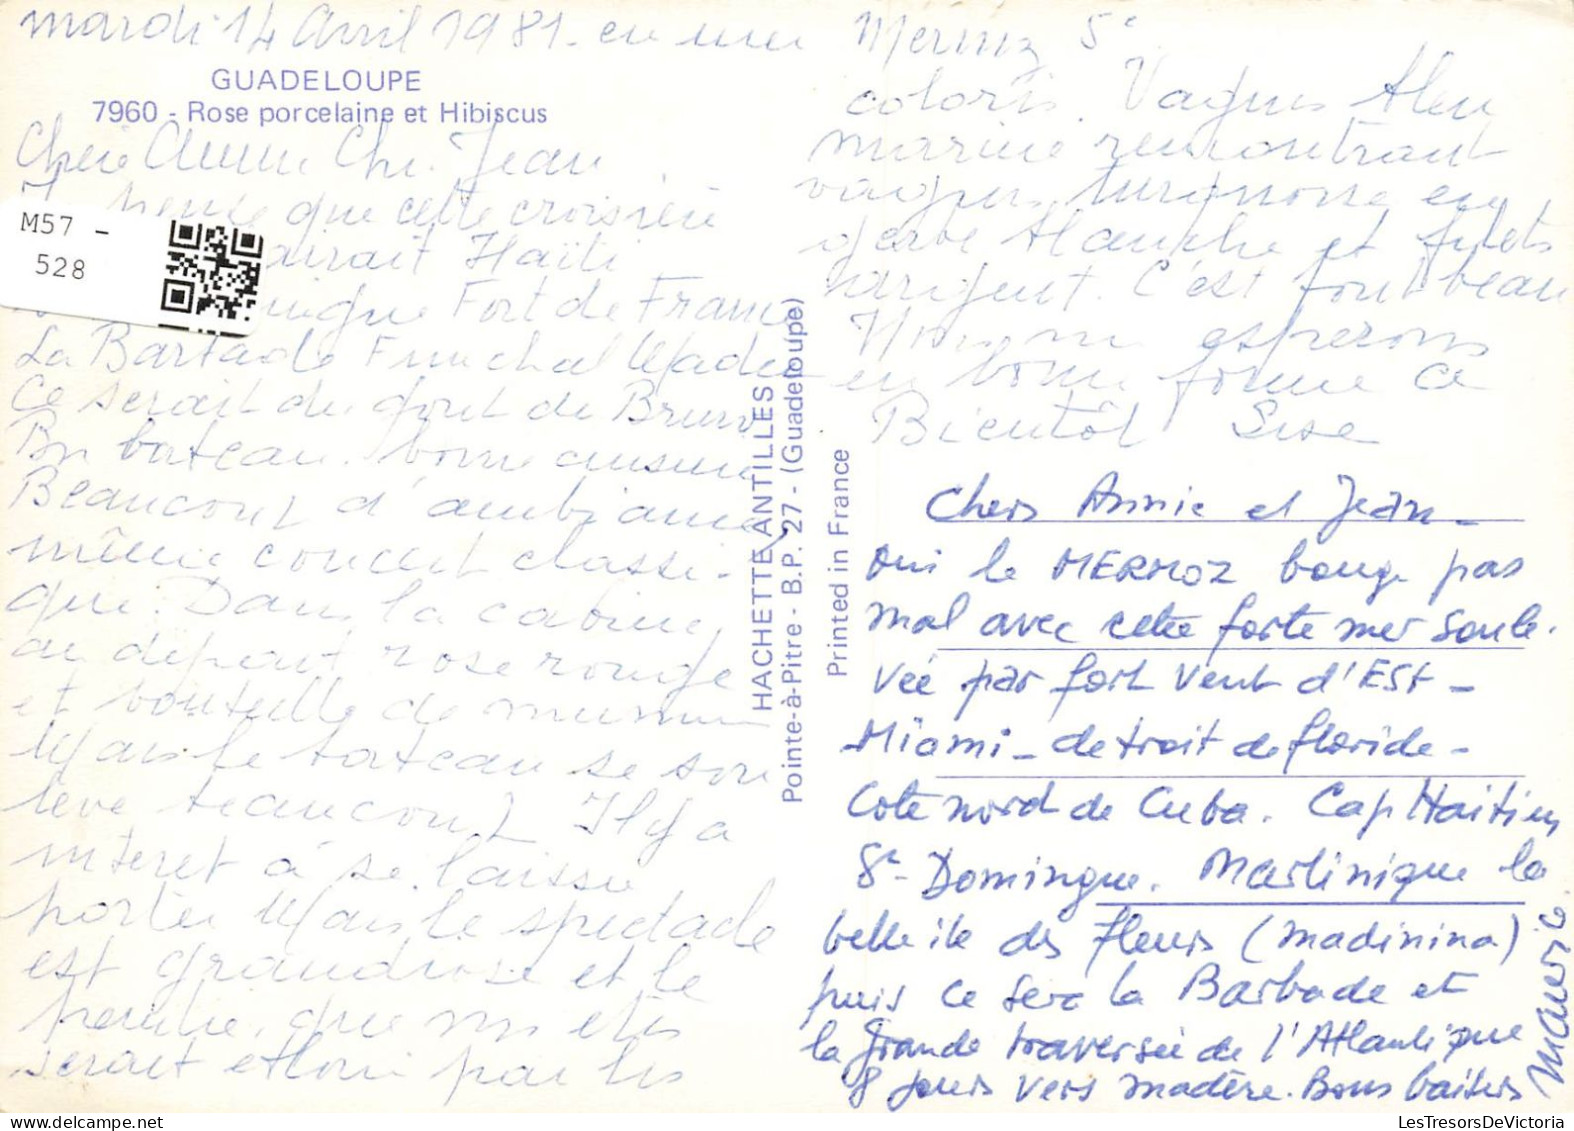 mardi 14 Avril 1981. en mer
GUADELOUPE
7960 - Rose porcelaine et Hibiscus
Chère Annie Cher Jean
pense que cette croisière
M57 -
528
Haïti
Fort de France
La Barbade Funchal Madère
Ce serait du goût de Bruno
Bon bateau. bonne cuisine
Beaucoup d'ambiance
même concert classi-
que. Dans la cabine,
au départ rose rouge
et bouteille de
Mais le bateau se sou
lève beaucoup Il y a
intéret à se laisser
porter Mais le spectacle
est grandiose et le
peintre que
serait ébloui par les
HACHETTE ANTILLES
Pointe-à-Pitre - B.P. 27 - (Guadeloupe)
Printed in France
Mermoz 5e
coloris. Vagues bleu
marine rencontrant
vagues turquoise en
gerbe blanche et filets
d'argent. C'est fort beau
Nous espérons
en bonne forme a
Bientôt Lise
Chers Annie et Jean -
oui le MERMOZ bouge pas
mal avec cette forte mer soule-
vée par fort vent d'EST -
Miami - detroit de floride -
Cote nord de Cuba. Cap Haitien
St - Domingue. Martinique la
belle ile des fleurs (madinina)
puis ce sera la Barbade et
la grande traversée de l'Atlantique
8 jours vers madère. Bons baisers
Maurice
LesTresorsDeVictoria.com